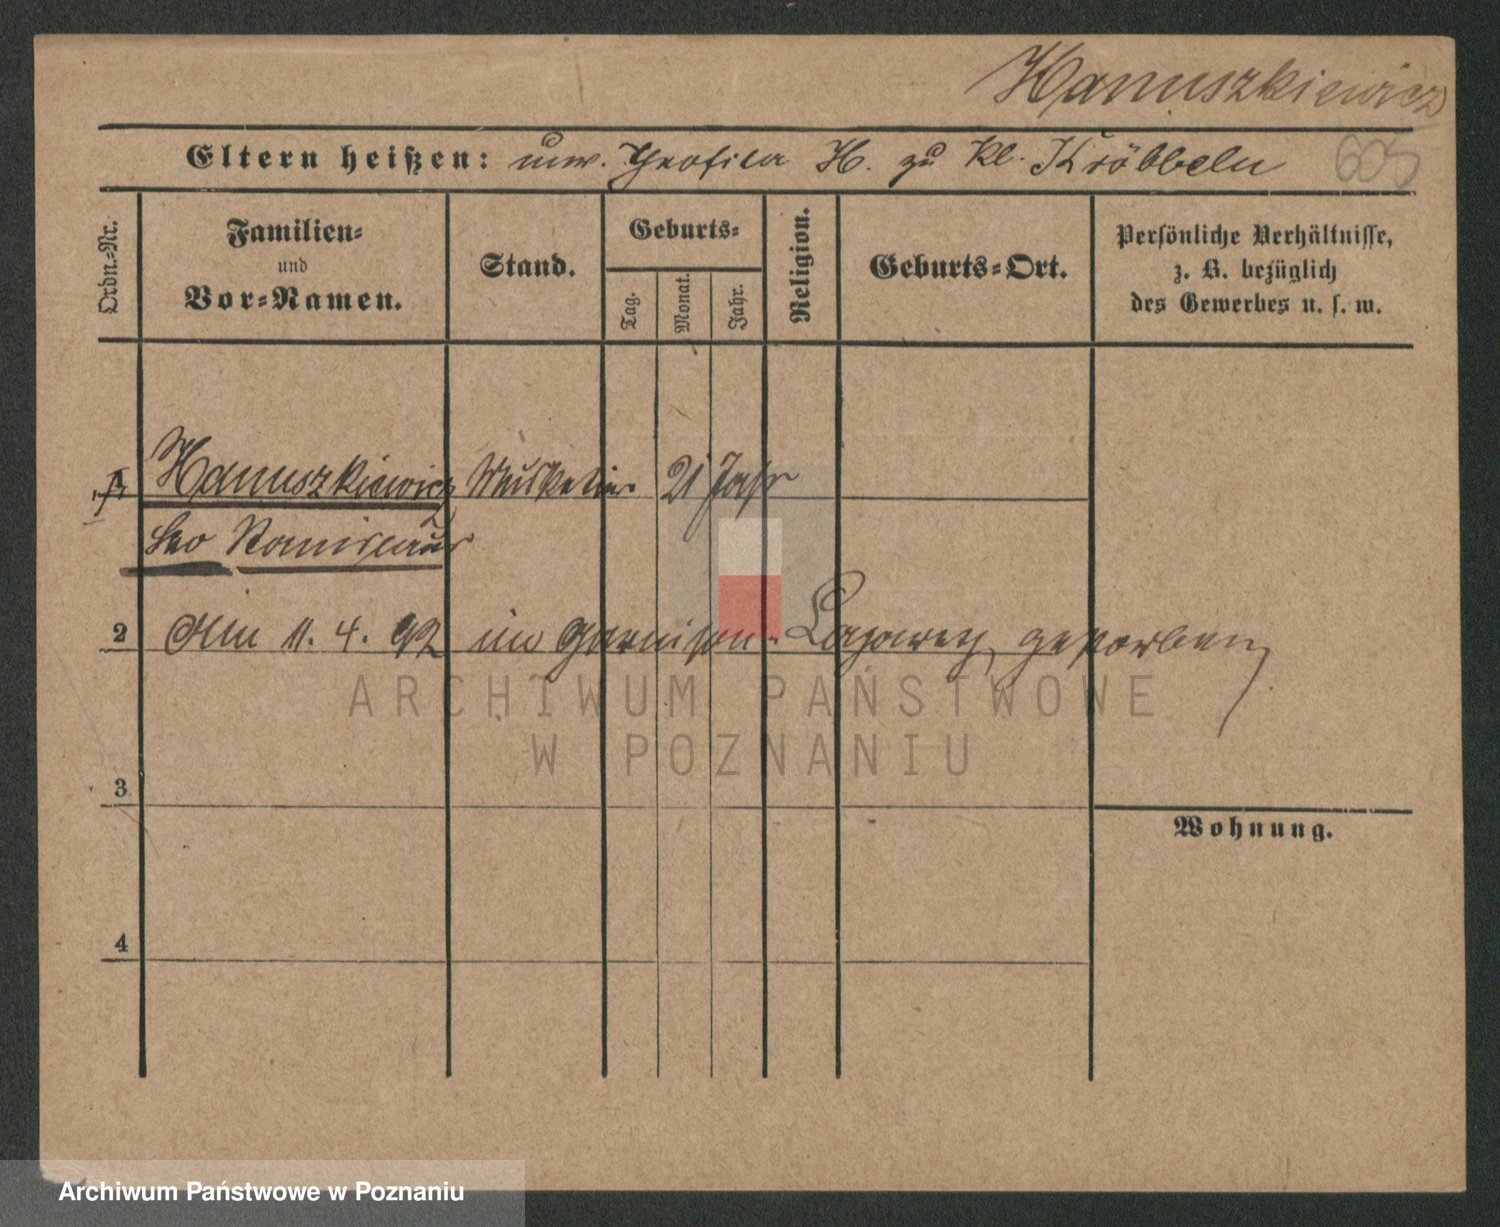 Hanuszkiewicz
Eltern heißen: unv. Theofila H. zu Kl. Kröbbeln 605
Ordn.-Nr.
Familien-
und
Vor-Namen.
Stand.
Geburts-
Tag.
Monat.
Jahr.
Religion.
Geburts-Ort.
Persönliche Verhältnisse,
z. B. bezüglich
des Gewerbes u. s. w.
1 Hanuszkiewicz Musketier 21 Jahr
Leo Stanislaus
2 Am 11. 4. 92 im Garnison-Lazareth gestorben
3
Wohnung.
4
ARCHIWUM PAŃSTWOWE
W POZNANIU
Archiwum Państwowe w Poznaniu